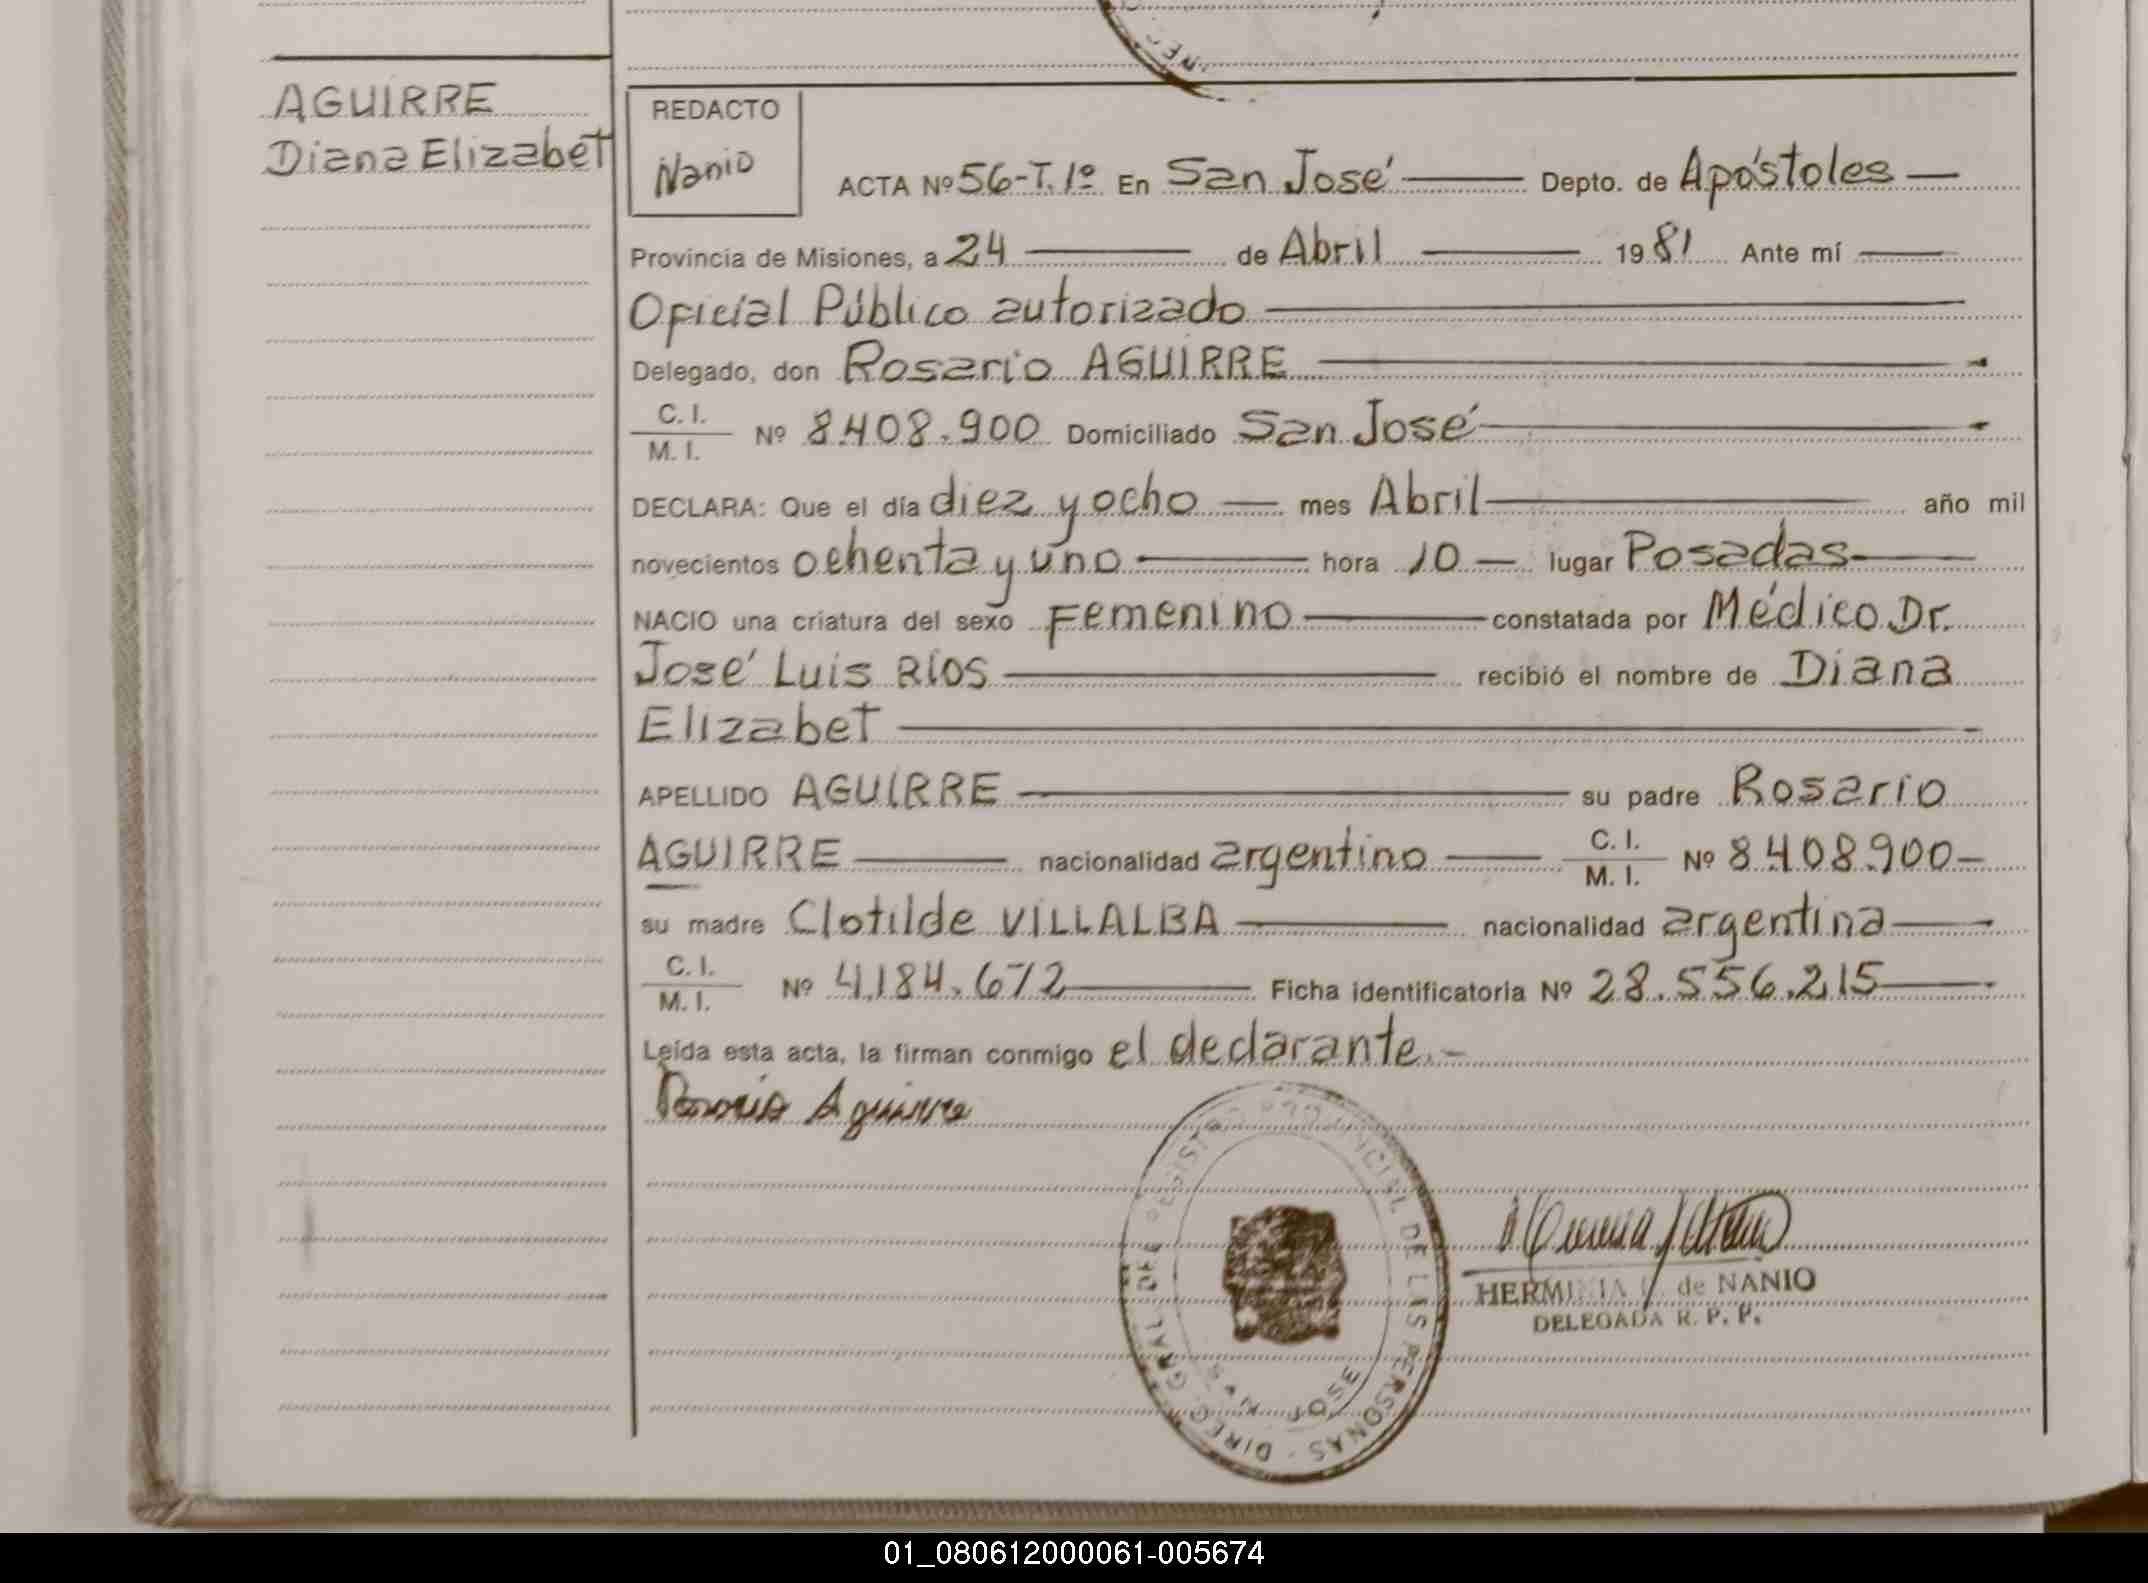 AGUIRRE
Diana Elizabet
REDACTO
Nanio
ACTA Nº 56-T.1º En San José Depto. de Apóstoles
Provincia de Misiones, a 24 de Abril 1981 Ante mí
Oficial Público autorizado
Delegado, don Rosario AGUIRRE
C. I.
M. I. Nº 8.408.900 Domiciliado San José
DECLARA: Que el día diez y ocho mes Abril año mil
novecientos ochenta y uno hora 10 lugar Posadas
NACIO una criatura del sexo Femenino constatada por Médico Dr.
José Luis RÍOS recibió el nombre de Diana
Elizabet
APELLIDO AGUIRRE su padre Rosario
AGUIRRE nacionalidad argentino C. I. M. I. Nº 8.408.900
su madre Clotilde VILLALBA nacionalidad argentina
C. I.
M. I. Nº 4.184.672 Ficha identificatoria Nº 28.556.215
Leída esta acta, la firman conmigo el declarante.-
Rosario Aguirre
DIREC. GRAL. DEL REGISTRO PROVINCIAL DE LAS PERSONAS
SAN JOSE
HERMINIA de NANIO
DELEGADA R. P. P.
01_080612000061-005674